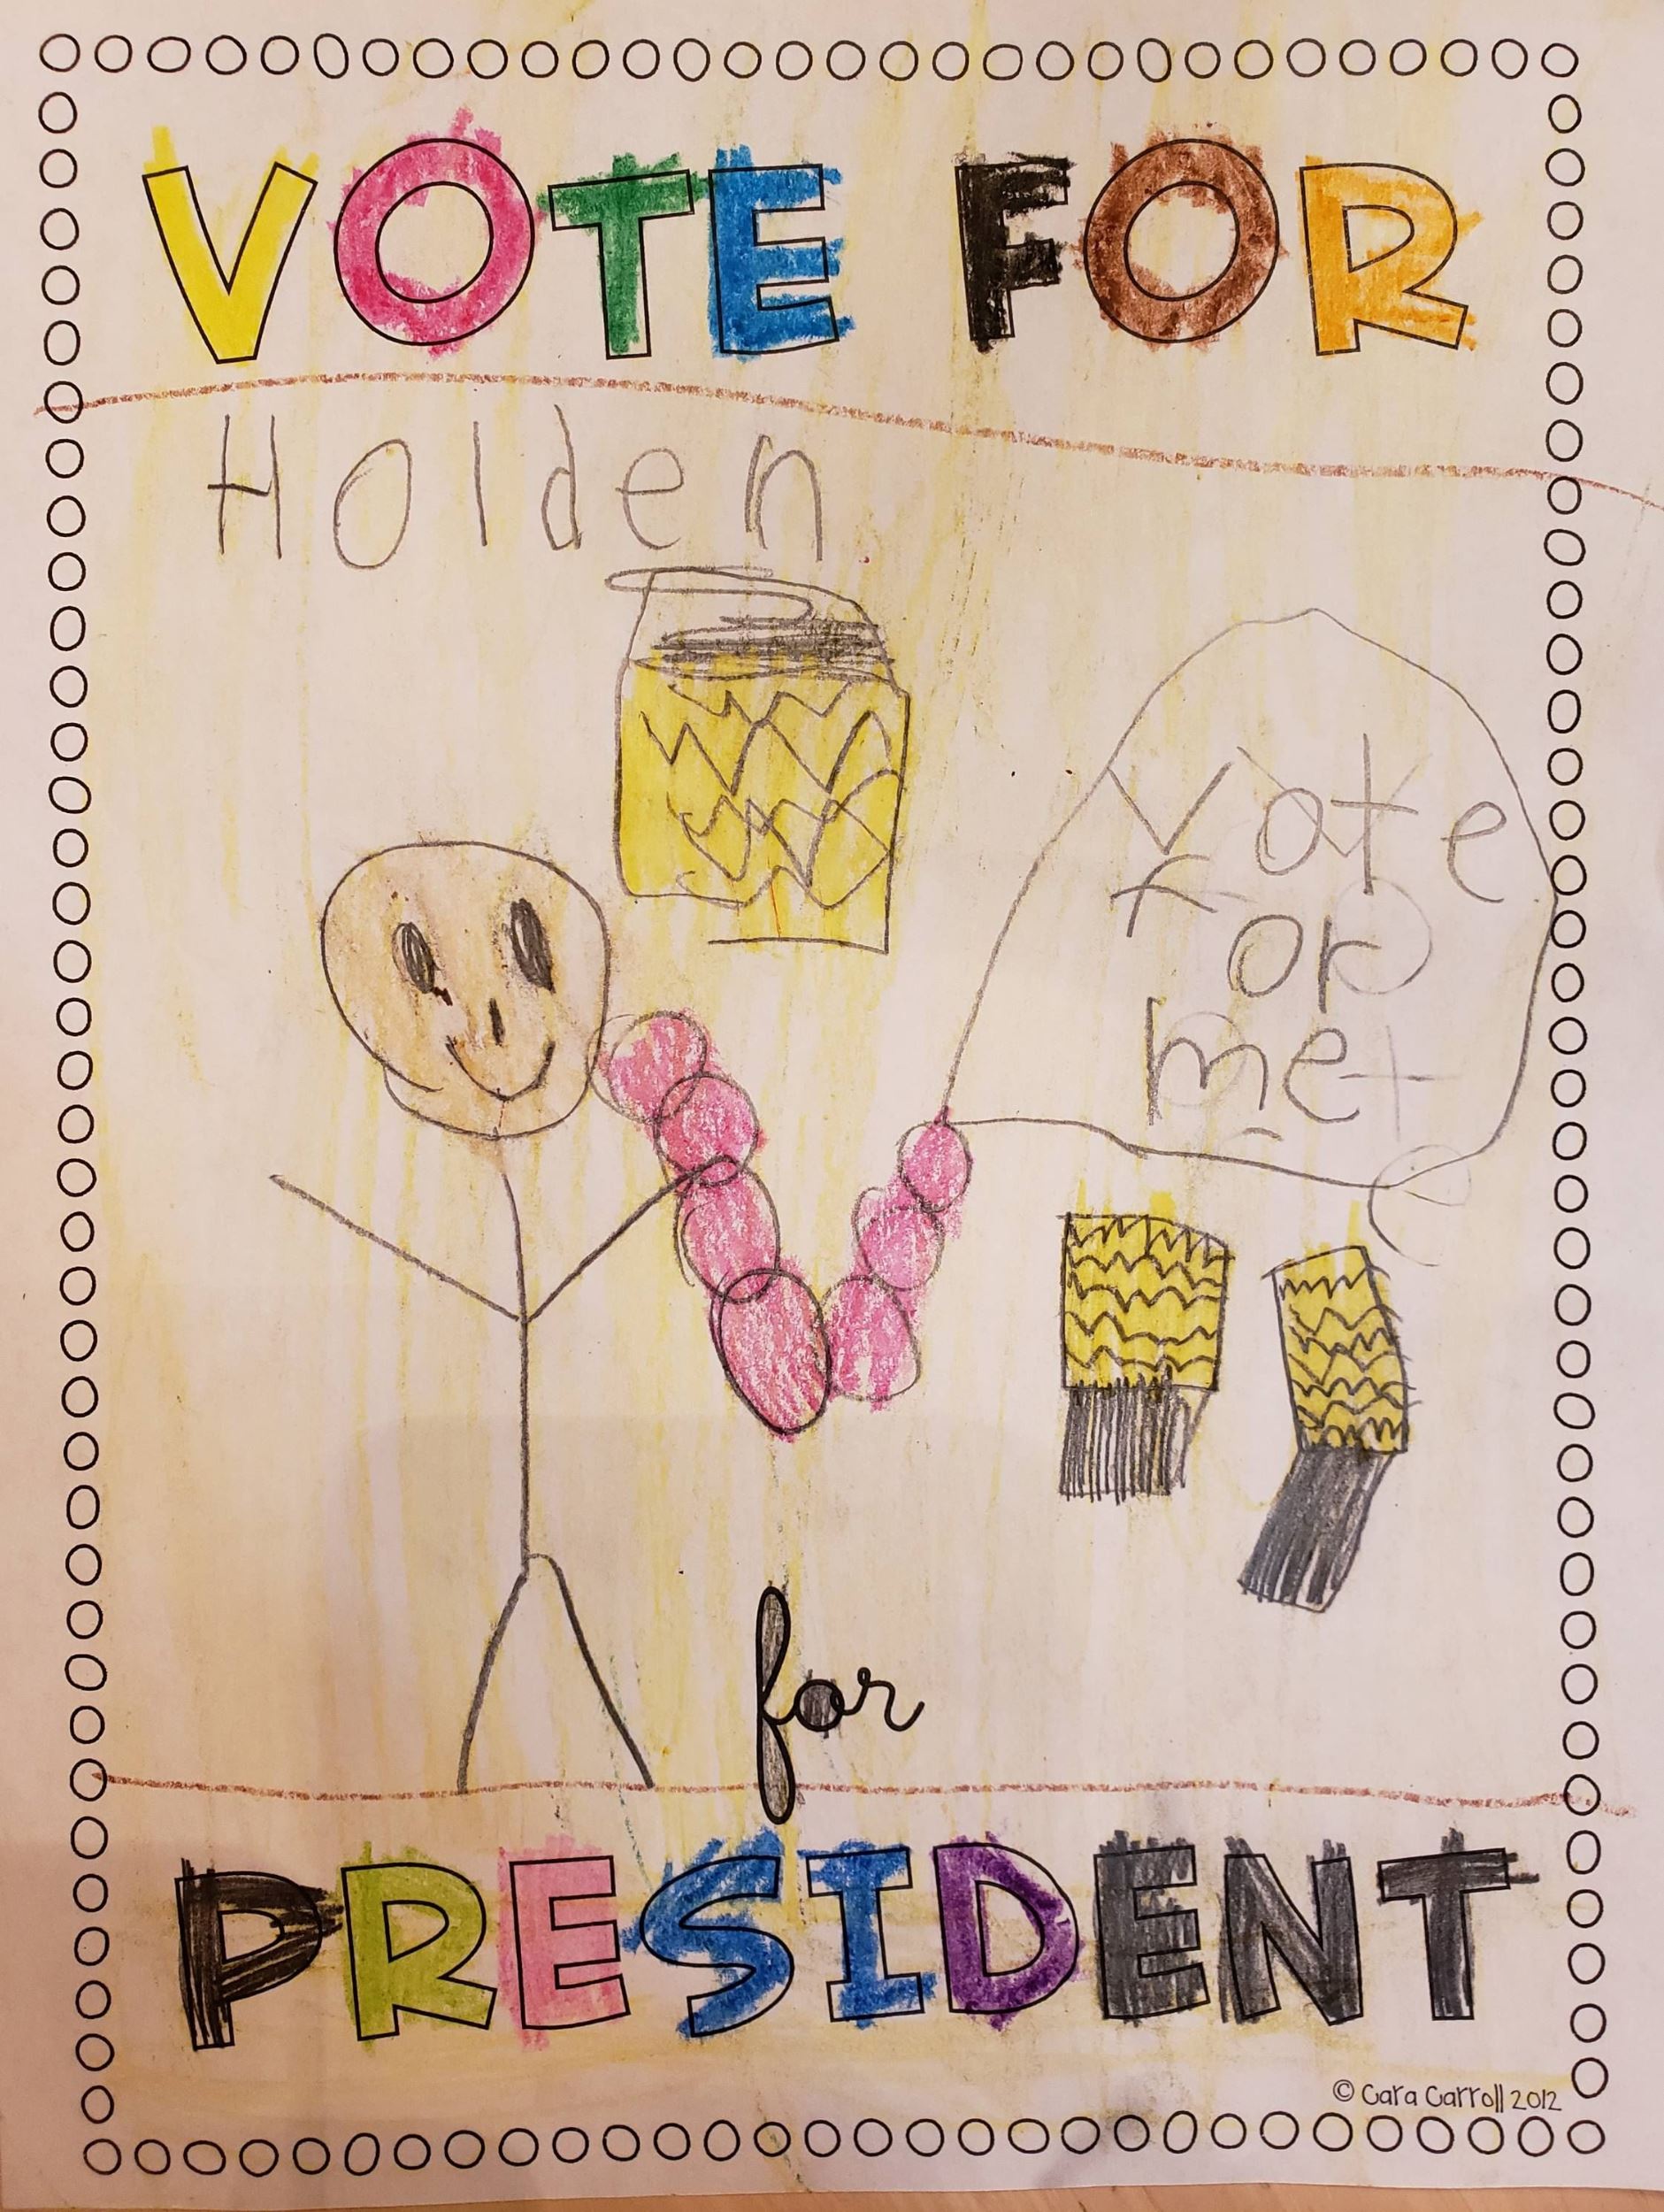 VOTE FOR
Holden
Vote
for
me
for
PRESIDENT
© Cara Carroll 2012